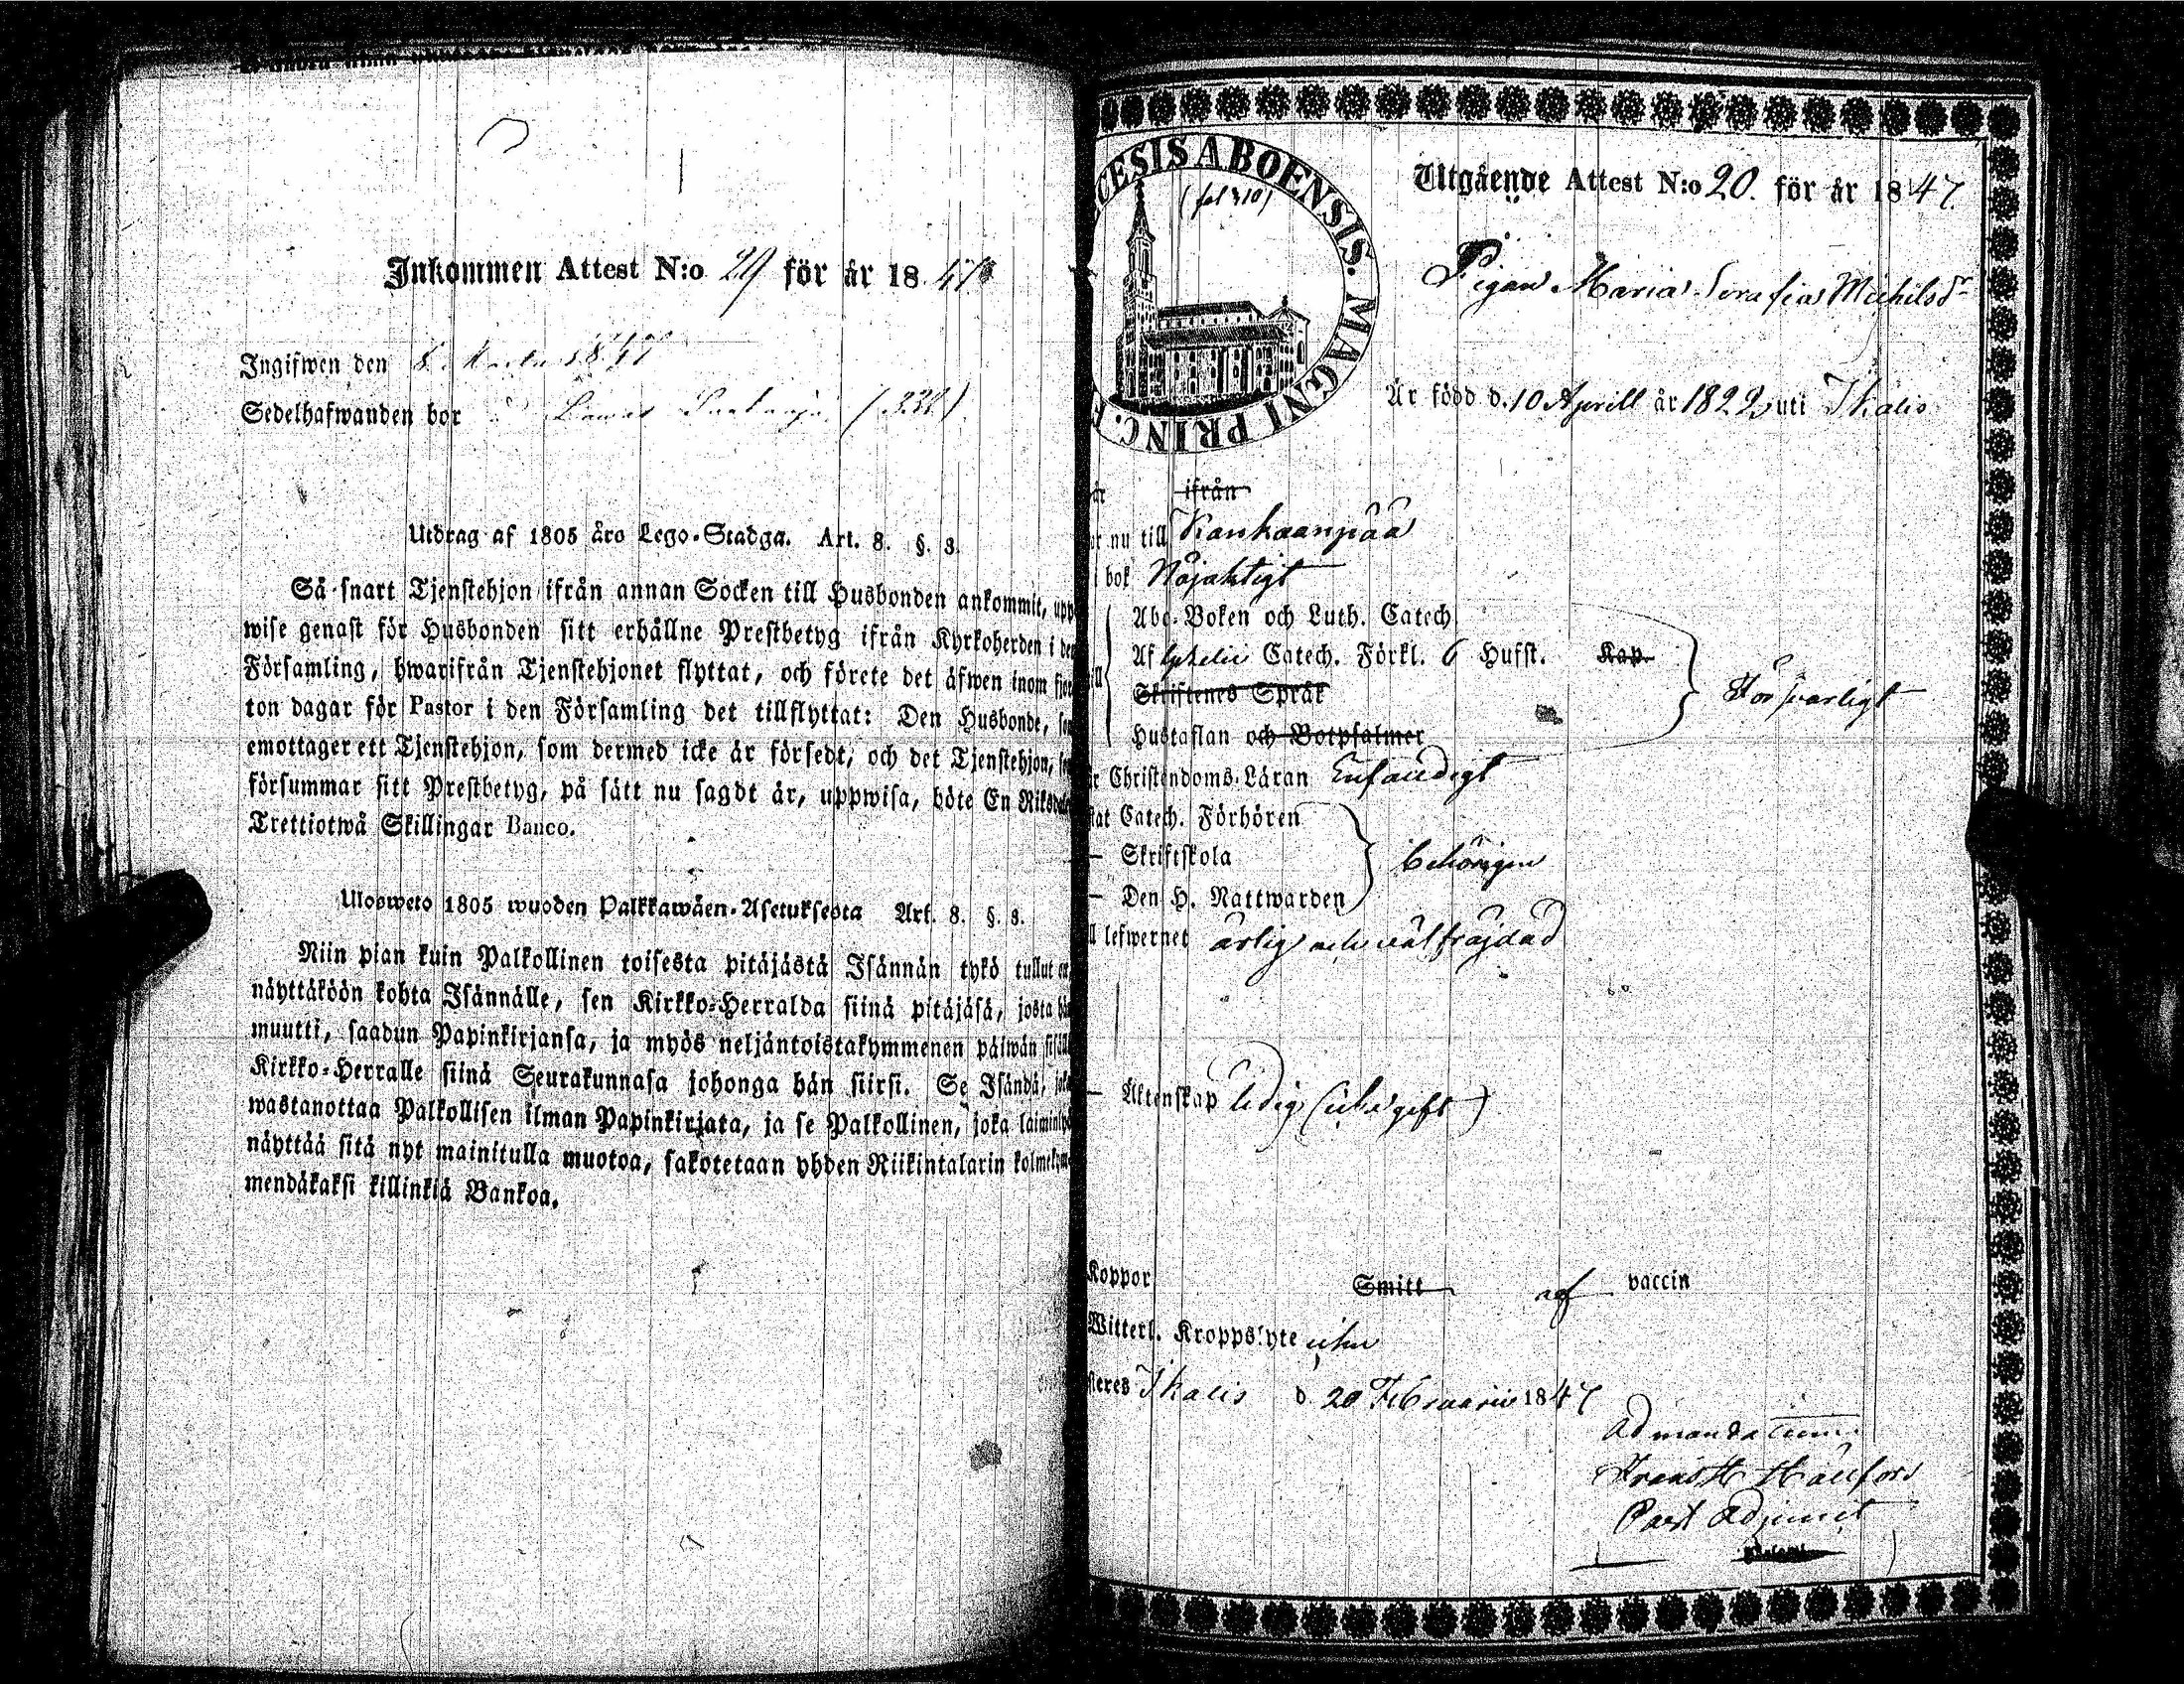 Inkommen Attest N:o 29 för år 1847
Ingifwen den 8 Martii 1847
Sedelhafwanden bor (332).
Utdrag af 1805 åro Lego-Stadga. Art. 8. §. 3.
Så snart Tjenstehjon ifrån annan Socken till Husbonden ankommit, upp
wise genast för Husbonden sitt erhållne Prestbetyg ifrån Kyrkoherden i den
Församling, hwarifrån Tjenstehjonet flyttat, och förete det äfwen inom fjor
ton dagar för Pastor i den Församling det tillflyttat: Den Husbonde, som
emottager ett Tjenstehjon, som dermed icke är försedt, och det Tjenstehjon, som
försummar sitt Prestbetyg, på sätt nu sagdt är, uppwisa, böte En Riksdaler
Trettiotwå Skillingar Banco.
Ulosweto 1805 wuoden Palkkawäen-Asetuksesta Art. 8. §. 3.
Niin pian kuin Palkollinen toisesta pitäjästä Isännän tykö tullut on,
näyttäköön kohta Isännälle, sen Kirkko-Herralda siinä pitäjäsä, josta hän
muutti, saadun Papinkirjansa, ja myös neljäntoistakymmenen päiwän sisällä
Kirkko-Herralle siinä Seurakunnasa johonga hän siirsi. Se Isändä, joka
wastanottaa Palkollisen ilman Papinkirjata, ja se Palkollinen, joka laiminlyö
näyttää sitä nyt mainitulla muotoa, sakotetaan yhden Riikintalarin kolmekym-
mendäkaksi killinkiä Bankoa.
CESIS ABOENSIS. MAGNI PRINC. F
(fol 310)
Utgående Attest N:o 20. för år 1847.
Pigan Maria Serafia Michilsdr
Är född d. 10 Aprill år 1822 uti Ikalis
är ifrån
or nu till Kankaanpää
i bok Nöjaktigt
Abc-Boken och Luth. Catech
Af Catech. Förkl. 6 Hufst. Kap.
Skriftenes Språk
Hustaflan och Botpsalmer
Försvarligt
r Christendoms-Läran Enfaldigt
kat Catech. Förhören
— Skriftskola
— Den H. Nattwarden
behörigen
ll lefwernet ärlig och välfräjdad
— Äktenskap ledig (icke gift)
Koppor Smitt af vaccin
Witterl. Kroppslyte icke
steres Ikalis d. 20 Februarii 1847
Ad mandatum
Frans H Hällfors
Past Adjunct